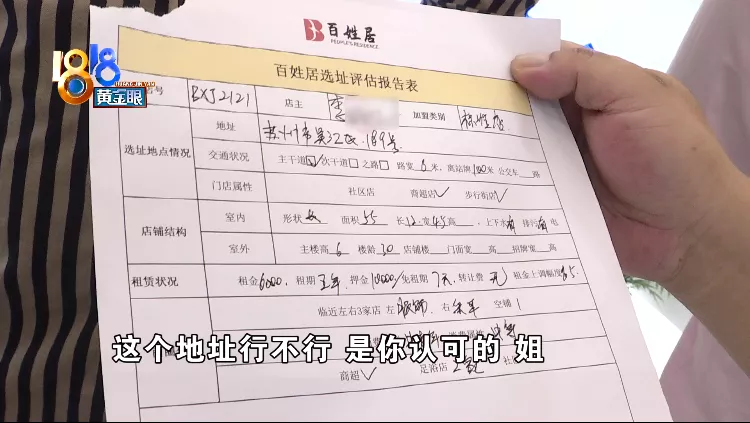 百姓居
PEOPLE'S RESIDENCE
1818
黄金眼
百姓居选址评估报告表
号 BXJ2121 店主 李 加盟类别 标准店
选址地点情况
地址 苏州市吴江区 189号
交通状况 主干道☑次干道☐之路☐ 路宽 6 米,离站牌 100米 公交车 路
门店属性 社区店 商超店✓ 步行街店✓
店铺结构
室内 形状 面积 55 长 12 宽 4.5 高 ,上下水 有 排污 有 电
室外 主楼高 6 楼龄 10 店铺楼 门面宽 高 招牌宽 高
租赁状况 租金6000,租期 五年,押金10000/免租期 7天,转让费 无 租金上调幅度
临近左右3家店 左 右 空铺 1
消费属性
商超✓ 足浴店 社
这个地址行不行 是你认可的 姐